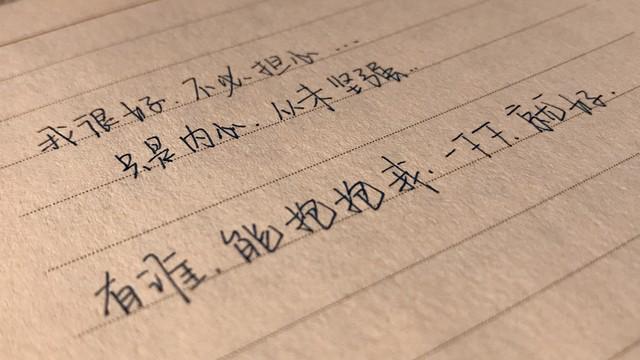 我很好.不必担心...
只是内心.从未坚强..
有谁.能抱抱我.一下下.就好.